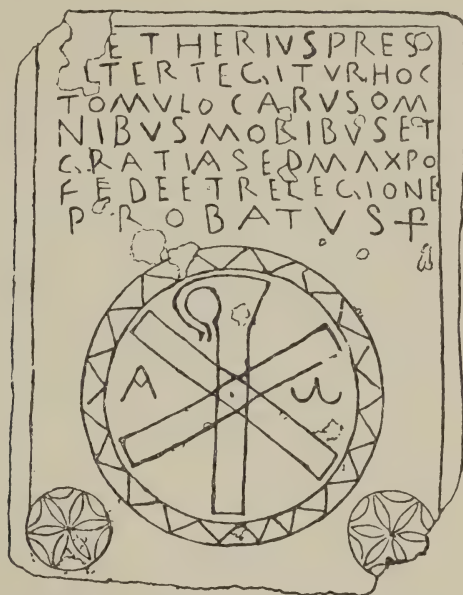 ETHERIVSPRESO
ITERTEGITVRHOC
TOMVLOCARVSOM
NIBVSMOBIBVSET
GRATIASEDMAXPO
FEDEETRELEGIONE
PROBATVS
A ω